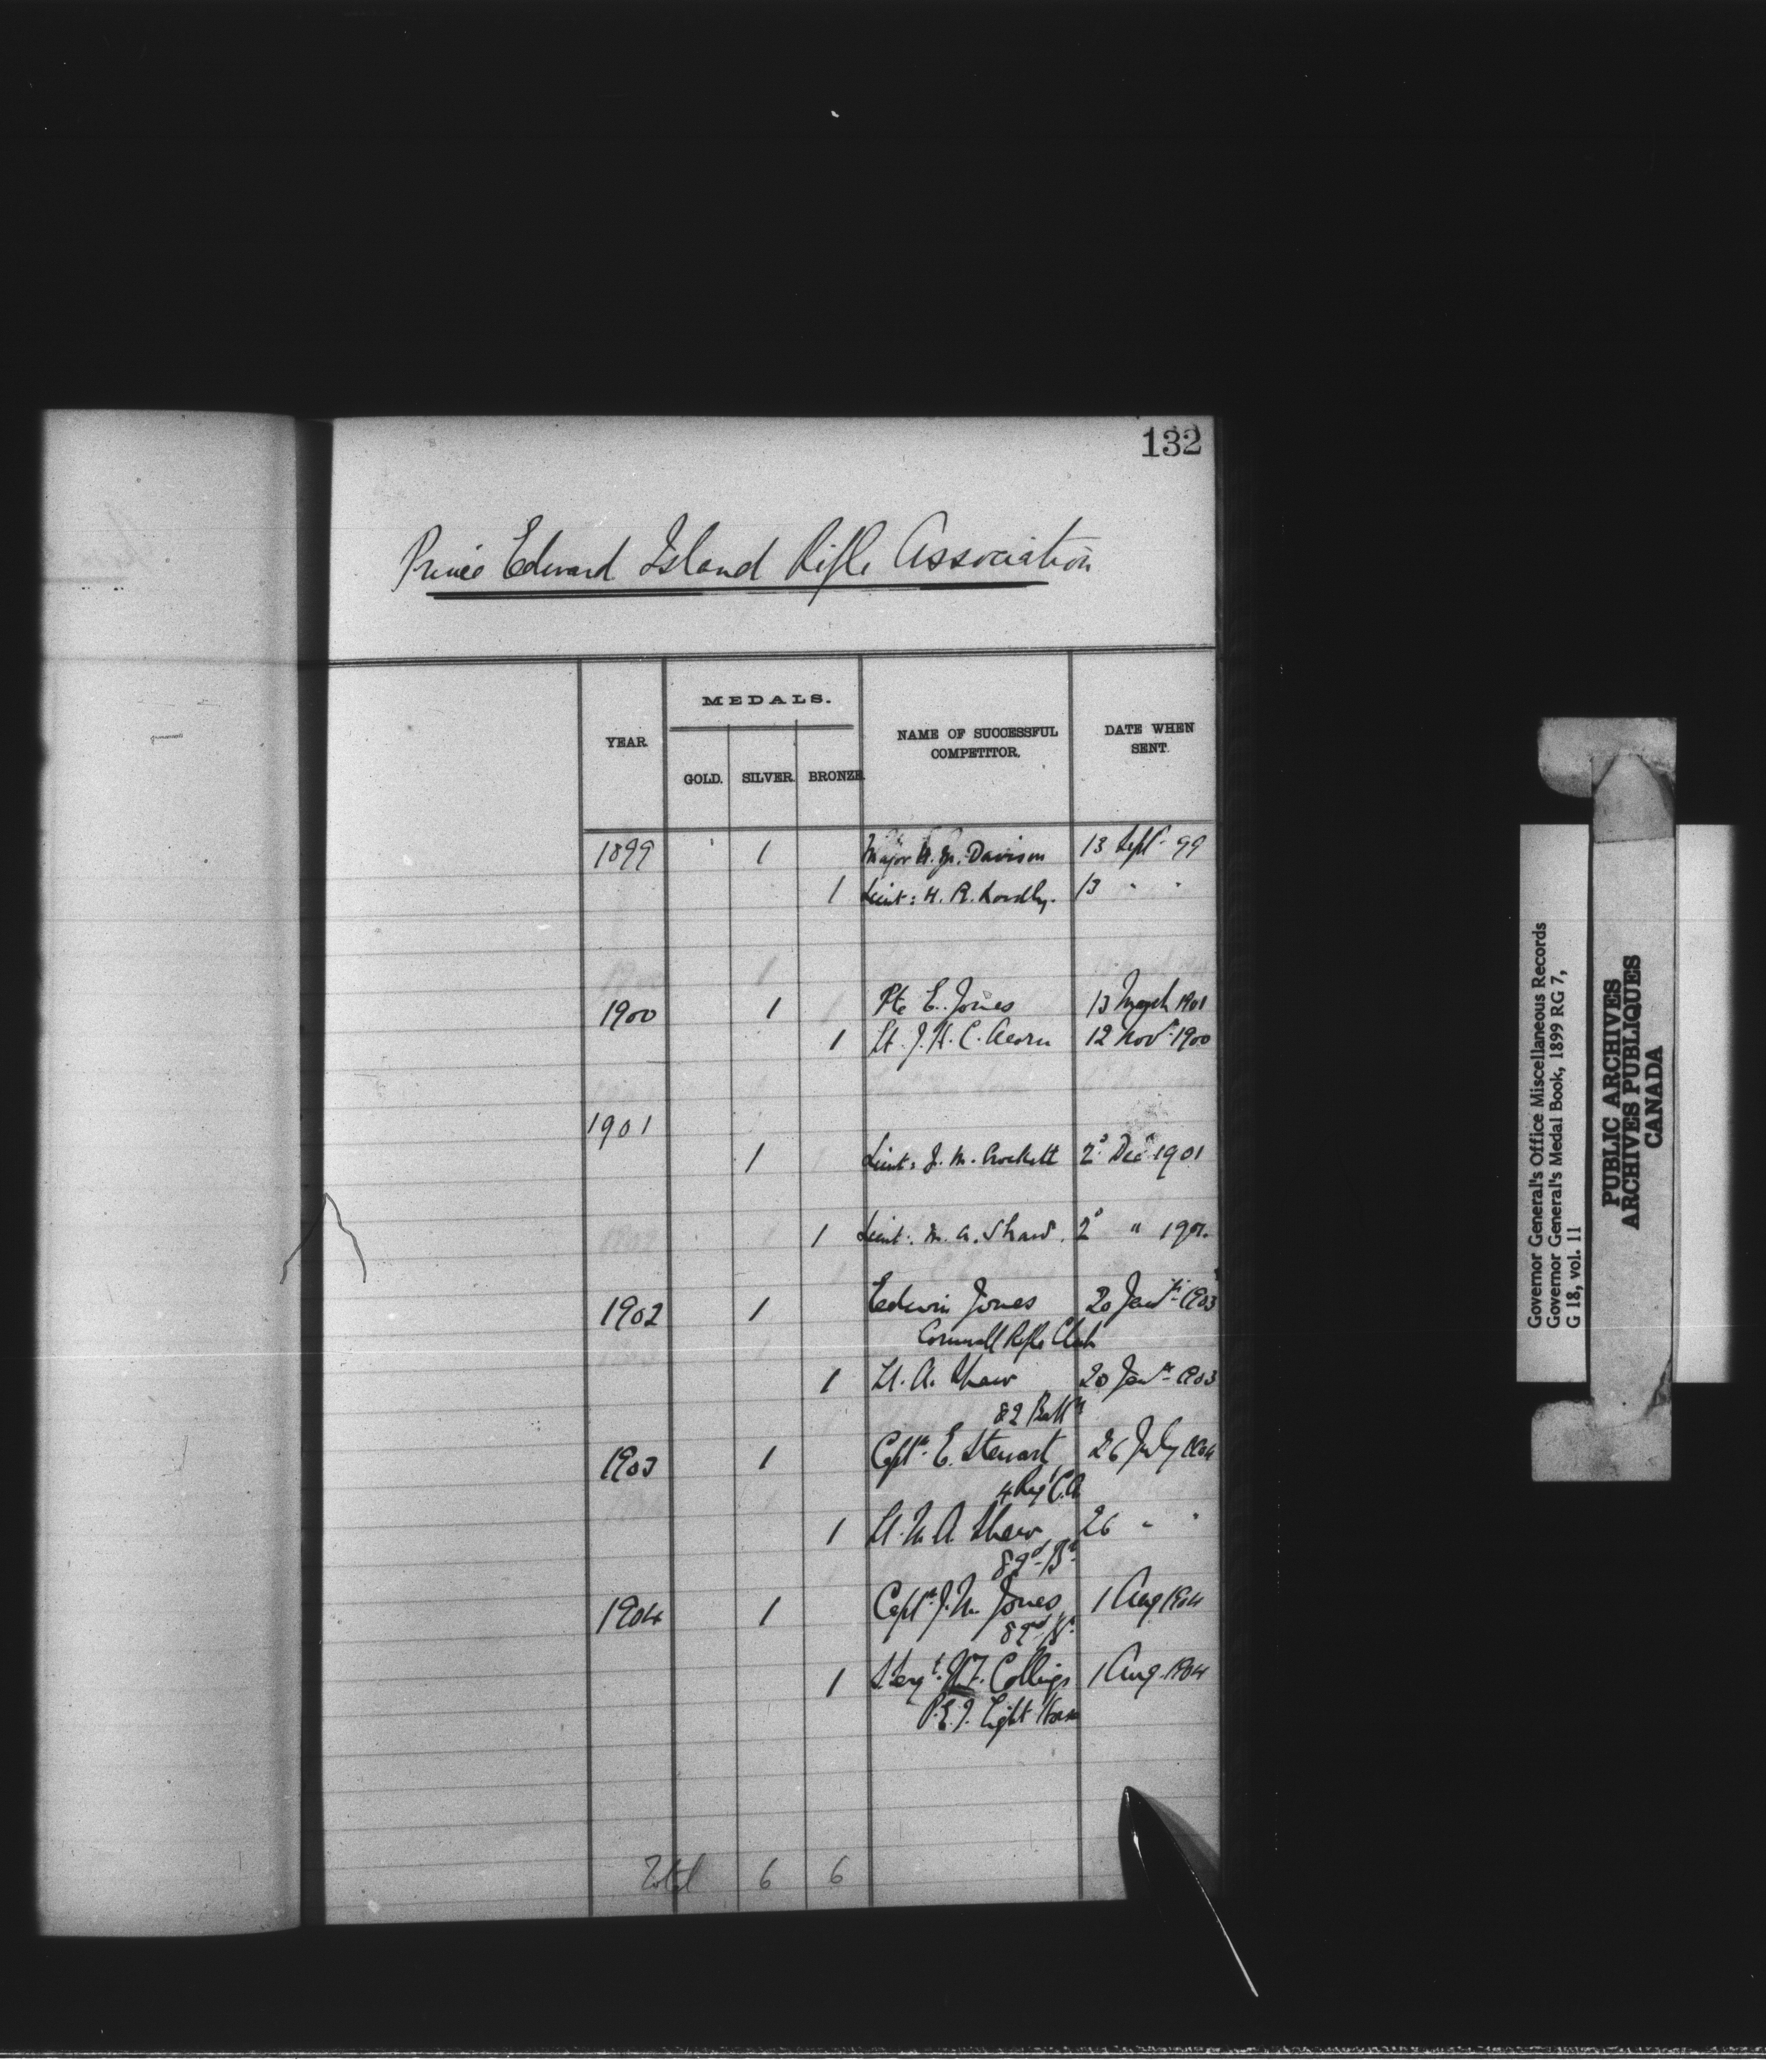 132
Prince Edward Island Rifle Association
YEAR
MEDALS.
GOLD.
SILVER.
BRONZE.
NAME OF SUCCESSFUL
COMPETITOR.
DATE WHEN
SENT.
1899 1 Major H. M. Davison 13 Sept. 99
1 Lieut: H. R. 13 " "
1900 1 Pte E. Jones 13 March 1901
1 Lt. J. H. C. Acorn 12 Nov. 1900
1901
1 Lieut: J. M. Crockett 2° Dec 1901
1 Lieut: M. A. Shaw. 2° " 1901.
1902 1 Edwin Jones 20 Jany 1903
Cornwall Rifle Club
1 Lt. A. Shaw 20 Jany 1903
82 Battn
1903 1 Captn. E. Stewart 26 July 1904
4 Regt C.A
1 Lt. M. A. Shaw 26 " "
82nd Bn
1904 1 Captn. J. M. Jones 1 Aug 1904
82nd Bn
1 S. Sergt. Collings 1 Aug. 1904
P.E.I. Light Horse
Total 6 6
Governor General's Office Miscellaneous Records
Governor General's Medal Book, 1899 RG 7,
G 18, vol. 11
PUBLIC ARCHIVES
ARCHIVES PUBLIQUES
CANADA